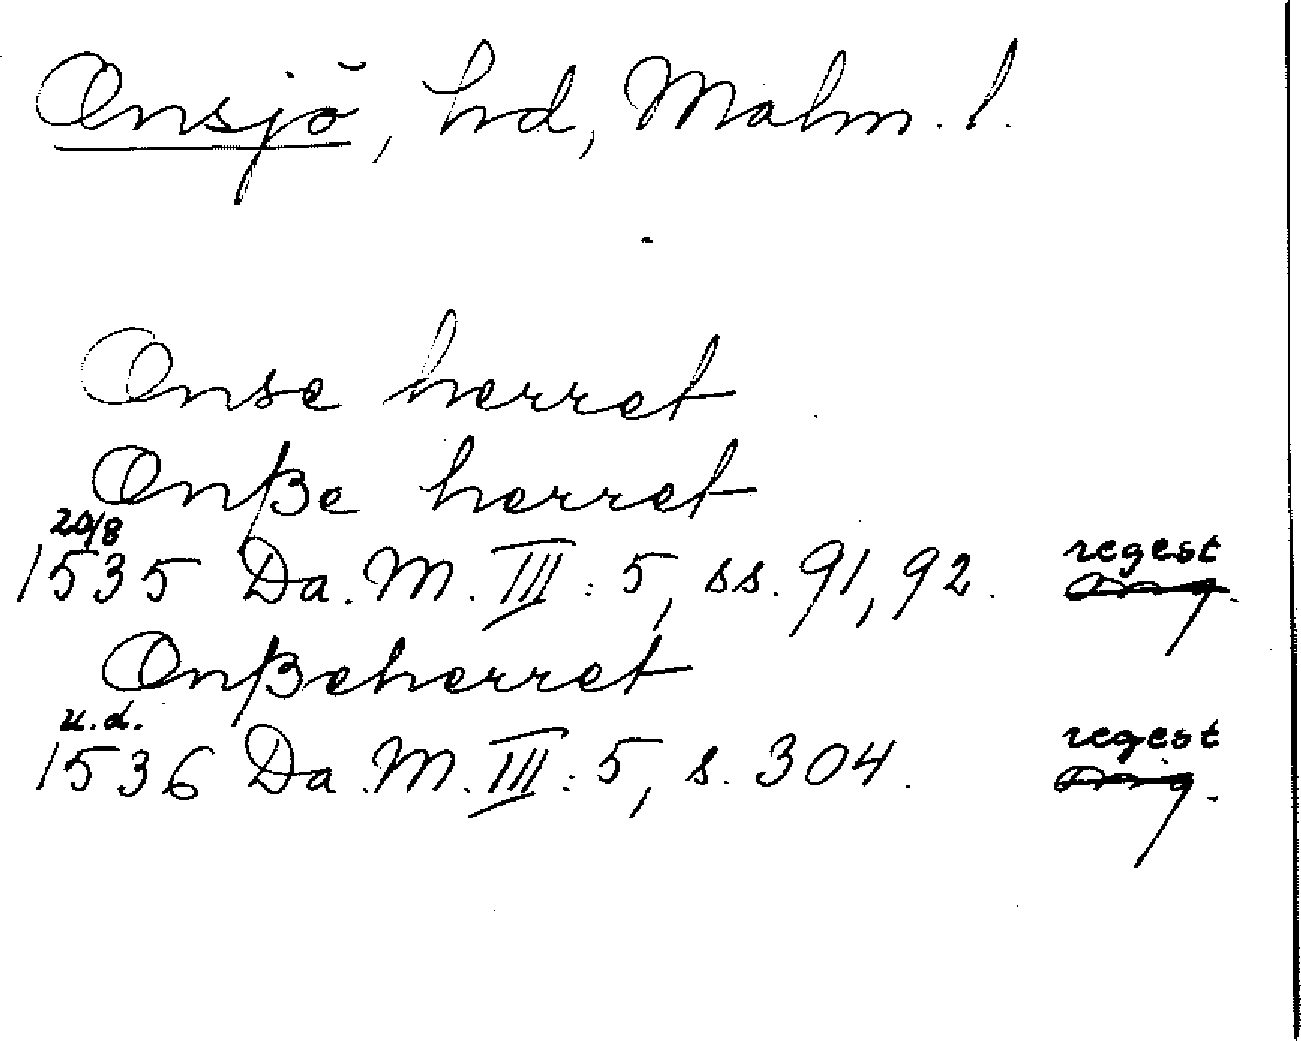 Onsjö, hd, Malm. l.
Onse herret
Onße herret
20/8
1535 Da. M. III: 5, ss. 91, 92. regest
Onßeherret
u. d.
1536 Da. M. III: 5, s. 304. regest